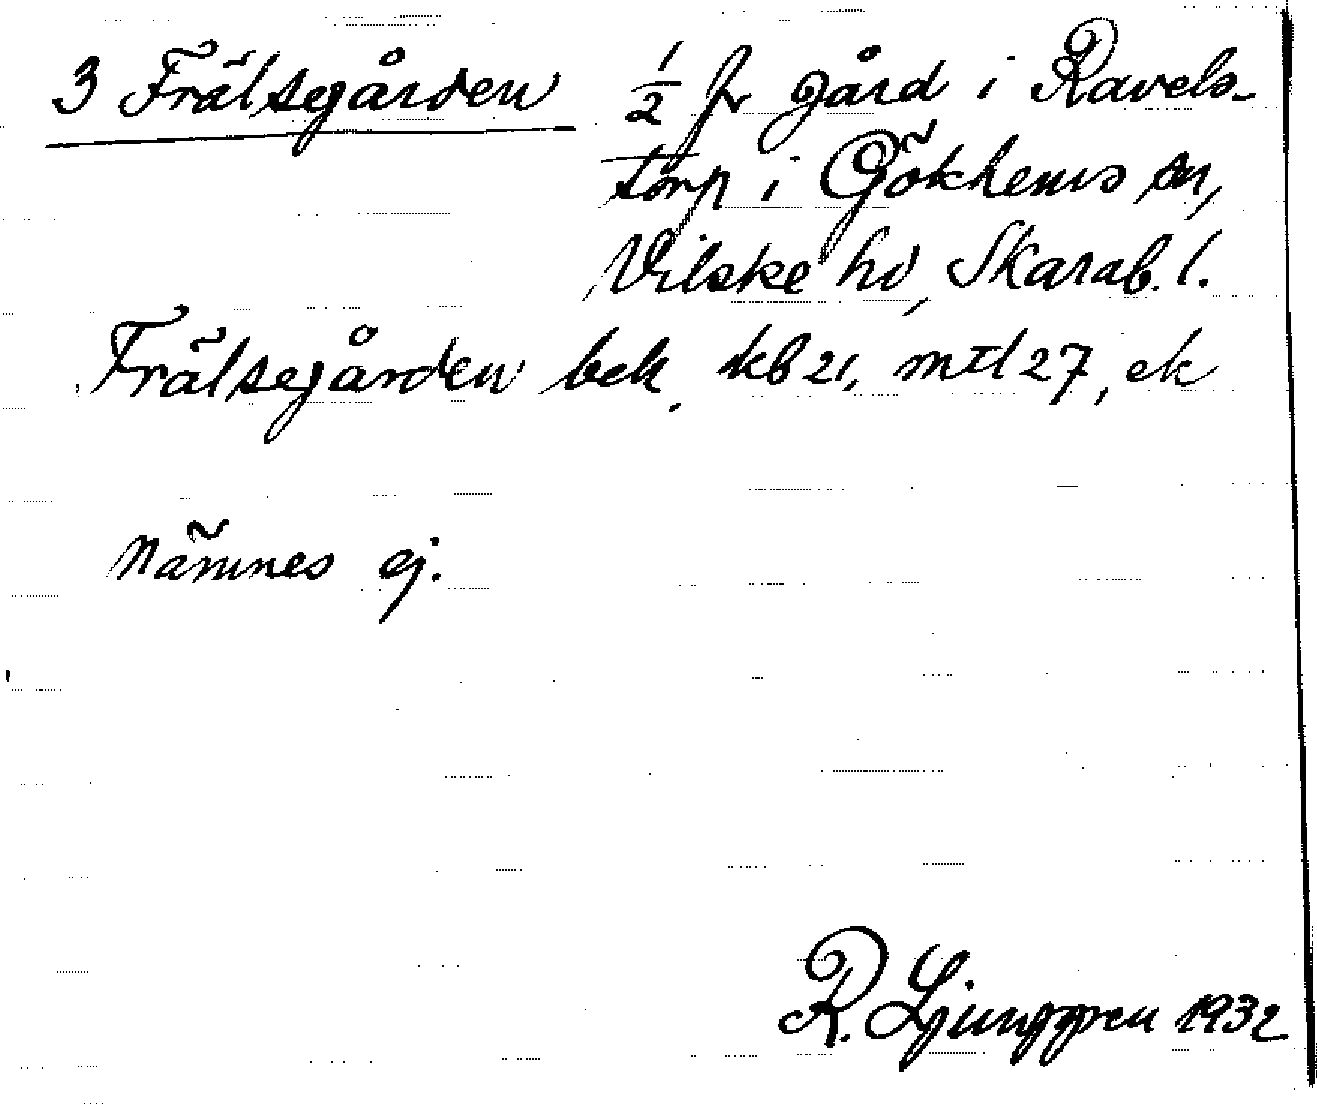 3 Frälsegården ½ fr gård i Ravels-
torp i Gökhems sn,
Vilske hd, Skarab. l.
Frälsegården bek. kb 21, mtl 27, ek
Nämnes ej.
R. Ljunggren 1932